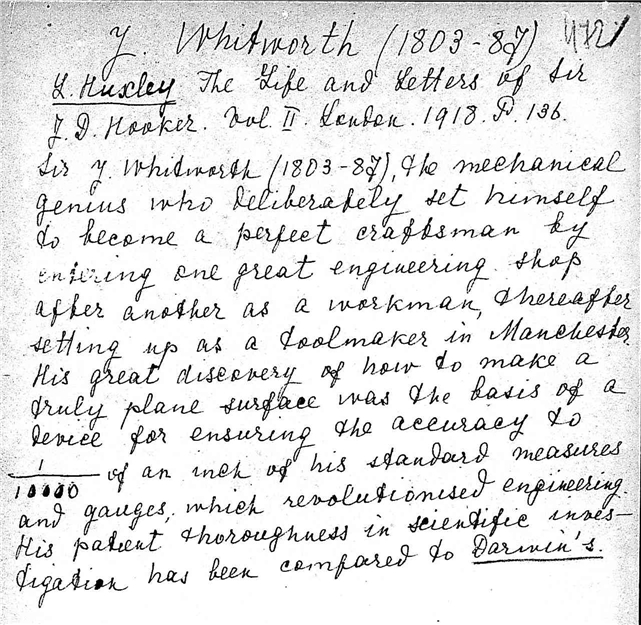 J. Whitworth (1803-87) 472
L. Huxley The Life and Letters of Sir
J. D. Hooker. Vol. II. London. 1918. P. 136.
Sir J. Whitworth (1803-87), the mechanical
genius who deliberately set himself
to become a perfect craftsman by
entering one great engineering shop
after another as a workman, thereafter
setting up as a toolmaker in Manchester.
His great discovery of how to make a
truly plane surface was the basis of a
device for ensuring the accuracy to
1/10000 of an inch of his standard measures
and gauges, which revolutionised engineering.
His patient thoroughness in scientific inves-
tigation has been compared to Darwin's.